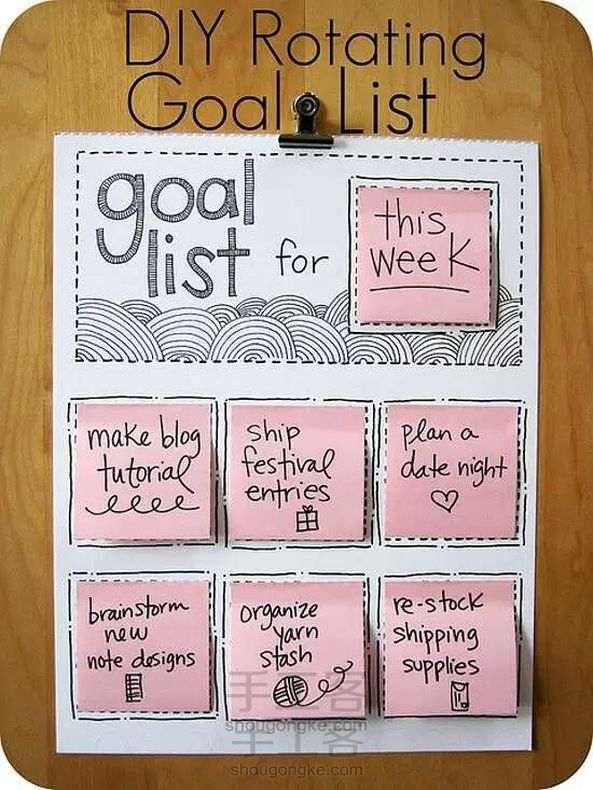 DIY Rotating
Goal List
goal
list for
this
week
make blog
tutorial
ship
festival
entries
plan a
date night
brainstorm
new
note designs
organize
yarn
stash
re-stock
shipping
supplies
手工客
shougongke.com
手工客
shougongke.com